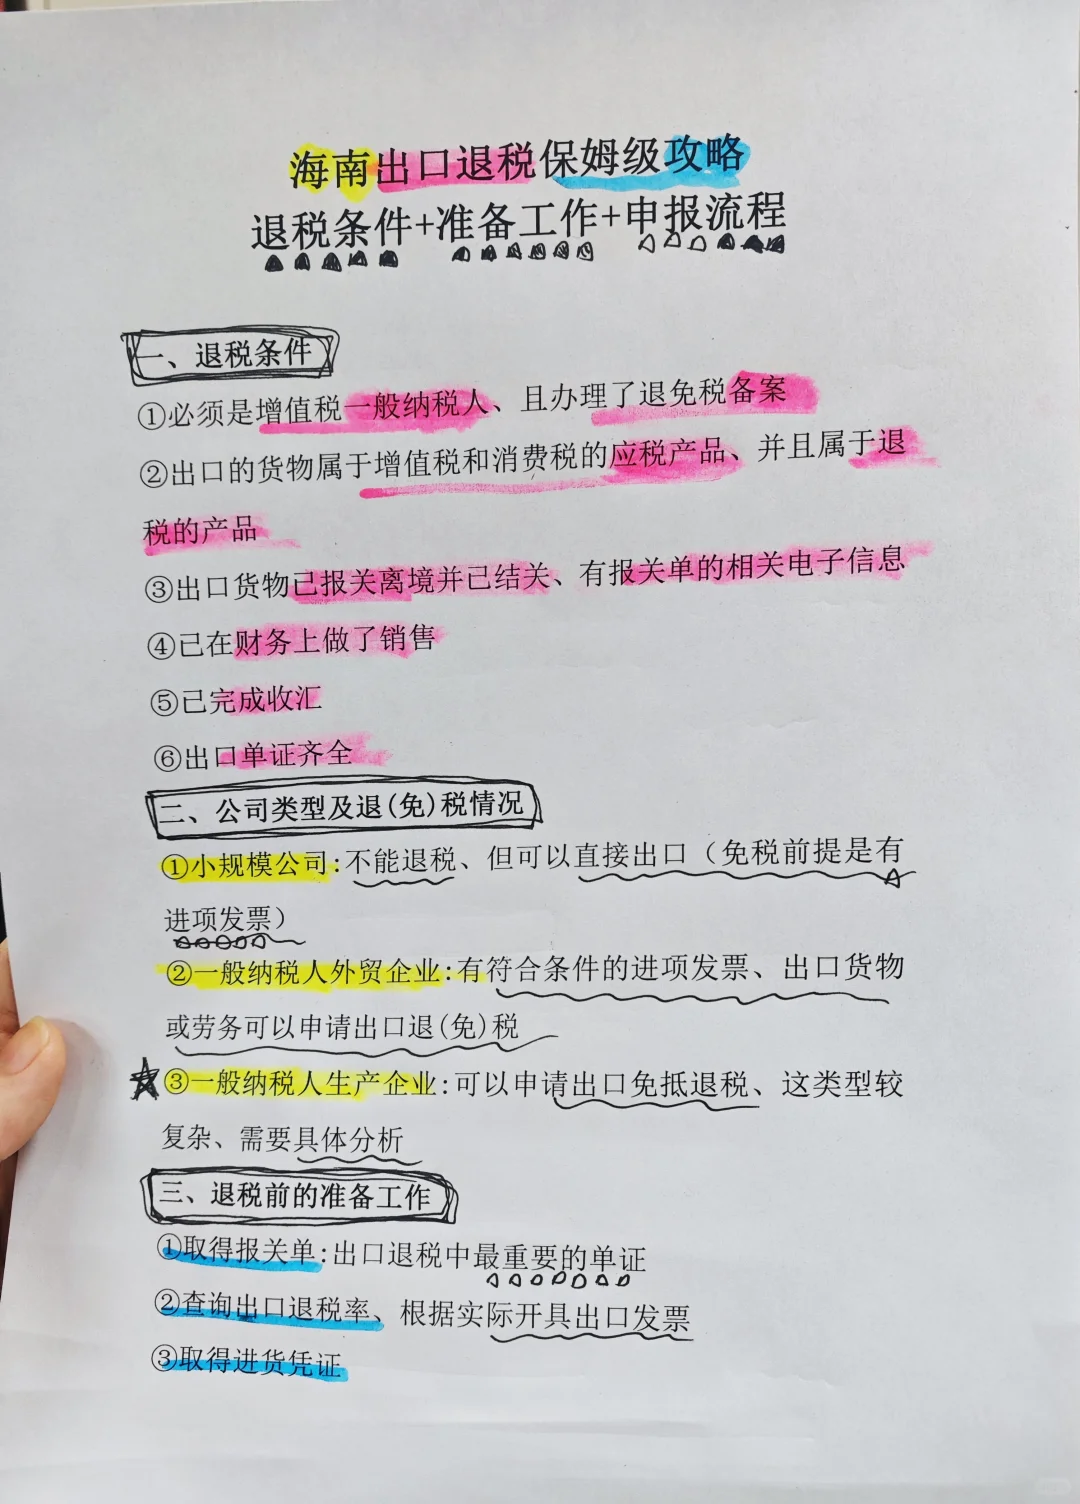 海南出口退税保姆级攻略
退税条件+准备工作+申报流程
一、退税条件
①必须是增值税一般纳税人、且办理了退免税备案
②出口的货物属于增值税和消费税的应税产品、并且属于退
税的产品
③出口货物已报关离境并已结关、有报关单的相关电子信息
④已在财务上做了销售
⑤已完成收汇
⑥出口单证齐全
二、公司类型及退(免)税情况
①小规模公司:不能退税、但可以直接出口（免税前提是有
进项发票）
②一般纳税人外贸企业:有符合条件的进项发票、出口货物
或劳务可以申请出口退(免)税
③一般纳税人生产企业:可以申请出口免抵退税、这类型较
复杂、需要具体分析
三、退税前的准备工作
①取得报关单:出口退税中最重要的单证
②查询出口退税率、根据实际开具出口发票
③取得进货凭证